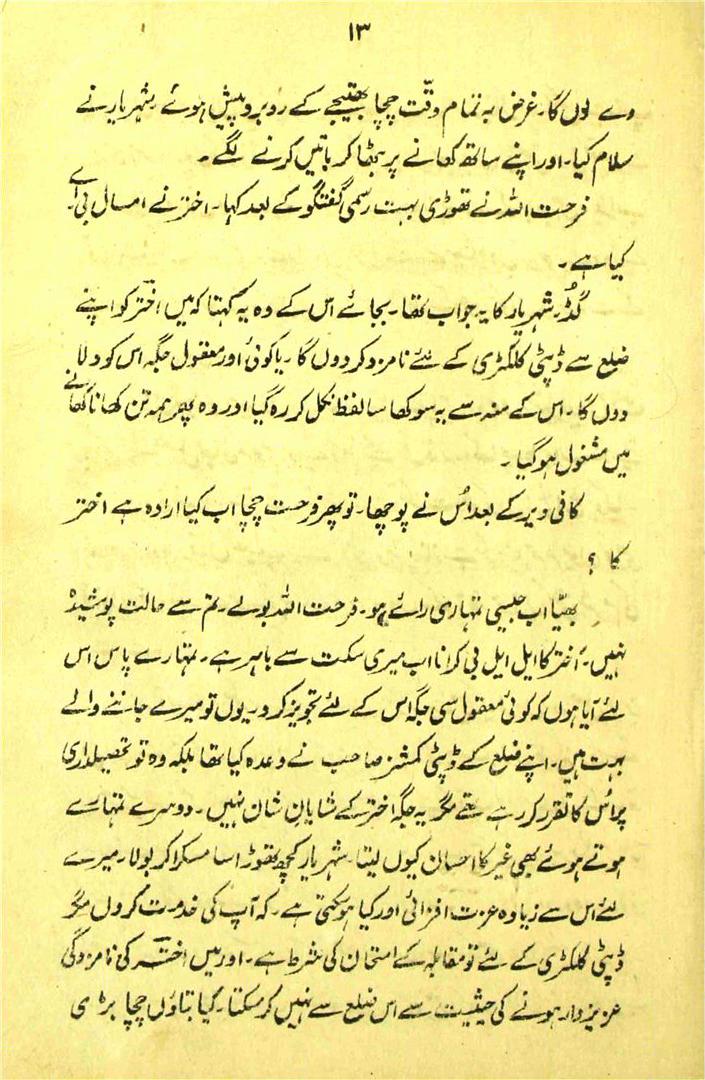 ۱۳
دے لوں گا۔ غرض بہ تمام وقّت چچا بھتیجے کے روبرو پیش ہوئے شہریار نے
سلام کیا۔ اور اپنے ساتھ کھانے پر بٹھا کر باتیں کرنے لگے۔
فرحت اللہ نے تھوڑی بہت رسمی گفتگو کے بعد کہا۔ اختر نے امسال بی اے
کیا ہے۔
گُڈ۔ شہریار کا یہ جواب تھا۔ بجائے اس کے وہ یہ کہتا کہ میں اختر کو اپنے
ضلع سے ڈپٹی کلکٹری کے لئے نامزد کر دوں گا۔ یا کوئی اور معقول جگہ اس کو دلا
دوں گا۔ اس کے منہ سے یہ سوکھا سا لفظ نکل کر رہ گیا اور وہ پھر ہمہ تن کھانا کھانے
میں مشغول ہو گیا۔
کافی دیر کے بعد اُس نے پوچھا۔ تو پھر فرحت چچا اب کیا ارادہ ہے اختر
کا؟
بھیّا اب جیسی تمہاری رائے ہو۔ فرحت اللہ بولے۔ تم سے حالت پوشیدہ
نہیں۔ اختر کا ایل ایل بی کرانا اب میری سکت سے باہر ہے۔ تمہارے پاس اس
لئے آیا ہوں کہ کوئی معقول سی جگہ اس کے لئے تجویز کر دو۔ یوں تو میرے جاننے والے
بہت ہیں۔ اپنے ضلع کے ڈپٹی کمشنر صاحب نے وعدہ کیا تھا بلکہ وہ تو تحصیلداری
پر اُس کا تقرر کر رہے تھے مگر یہ جگہ اختر کے شایانِ شان نہیں۔ دوسرے تمہارے
ہوتے ہوئے بھی غیر کا احسان کیوں لیتا۔ شہریار کچھ تھوڑا سا مسکرا کر بولا۔ میرے
لئے اس سے زیادہ عزت افزائی اور کیا ہو سکتی ہے۔ کہ آپ کی خدمت کروں مگر
ڈپٹی کلکٹری کے لئے تو مقابلہ کے امتحان کی شرط ہے۔ اور میں اختر کی نامزدگی
عزیز دار ہونے کی حیثیت سے اس ضلع سے نہیں کر سکتا۔ کیا بتاؤں چچا بڑی